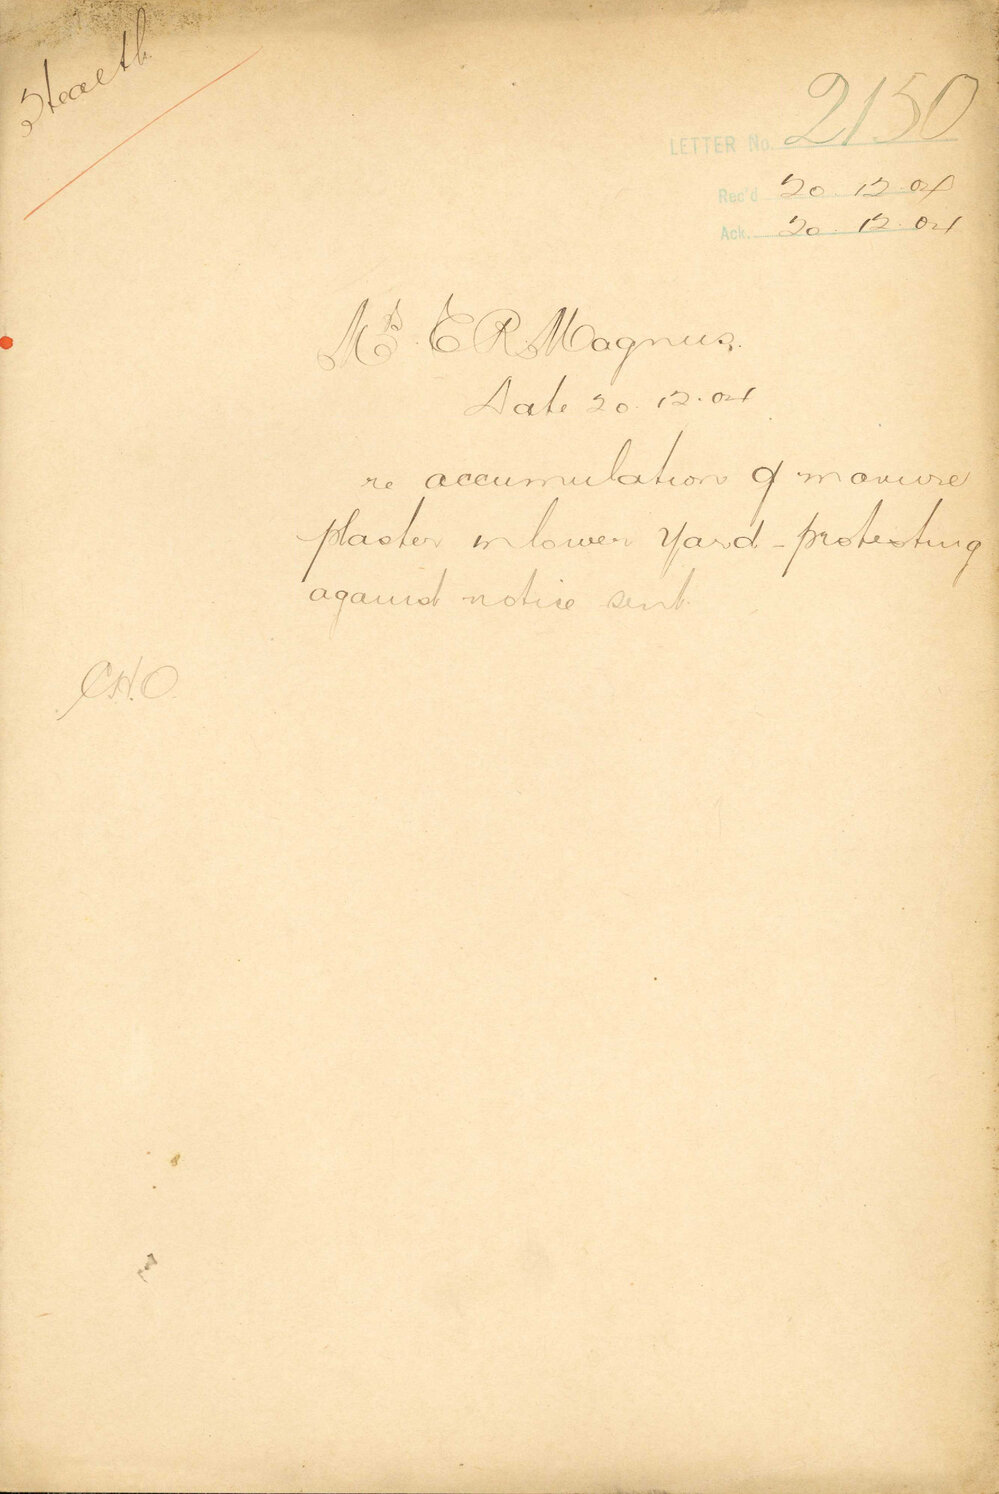 Health
LETTER No. 2150
Rec'd 20.12.04
Ack. 20.12.04
Mrs. E R. Magnus.
Date 20.12.04
re accumulation of manure
plaster in lower yard - protesting
against notice sent
C.H.O.